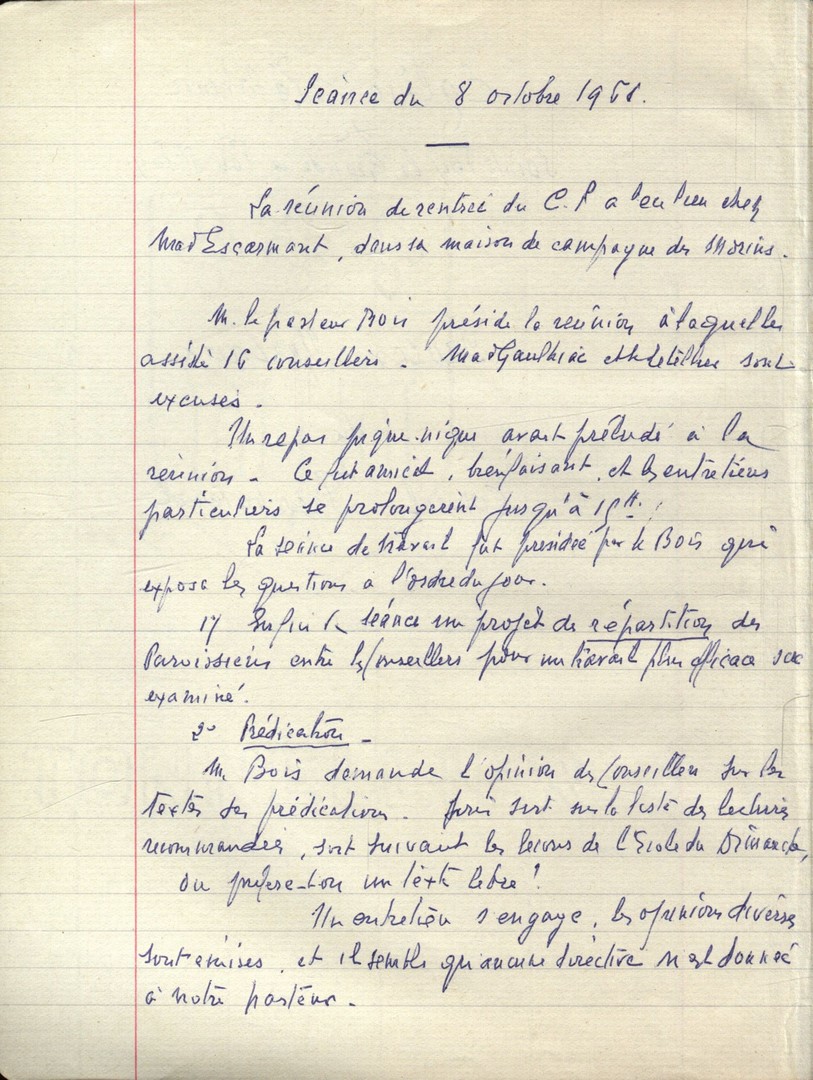 Séance du 8 octobre 1961.
La réunion de rentrée du C.P a eu lieu chez
Mad Escarmant, dans sa maison de campagne des Morins.
M. le pasteur Bois préside la réunion à laquelle
assiste 16 conseillers. Mad Gaulhiac et sont
excusés.
Un repas pique-nique avait préludé à la
réunion. Ce fut amical, bienfaisant, et les entretiens
particuliers se prolongèrent jusqu'à 15 H.
La séance de travail fut présidée par M. Bois qui
exposa les questions à l'ordre du jour.
1) En fin de séance un projet de répartition des
Paroissiens entre les Conseillers pour un travail plus efficace sera
examiné.
2° Prédication -
M. Bois demande l'opinion des Conseillers sur les
textes des prédications. pris soit sur la liste des lectures
recommandées, soit suivant les leçons de l'Ecole du Dimanche,
ou préfère-t-on un texte libre?
Un entretien s'engage, les opinions diverses
sont émises, et il semble qu'aucune directive n'est donnée
à notre pasteur.